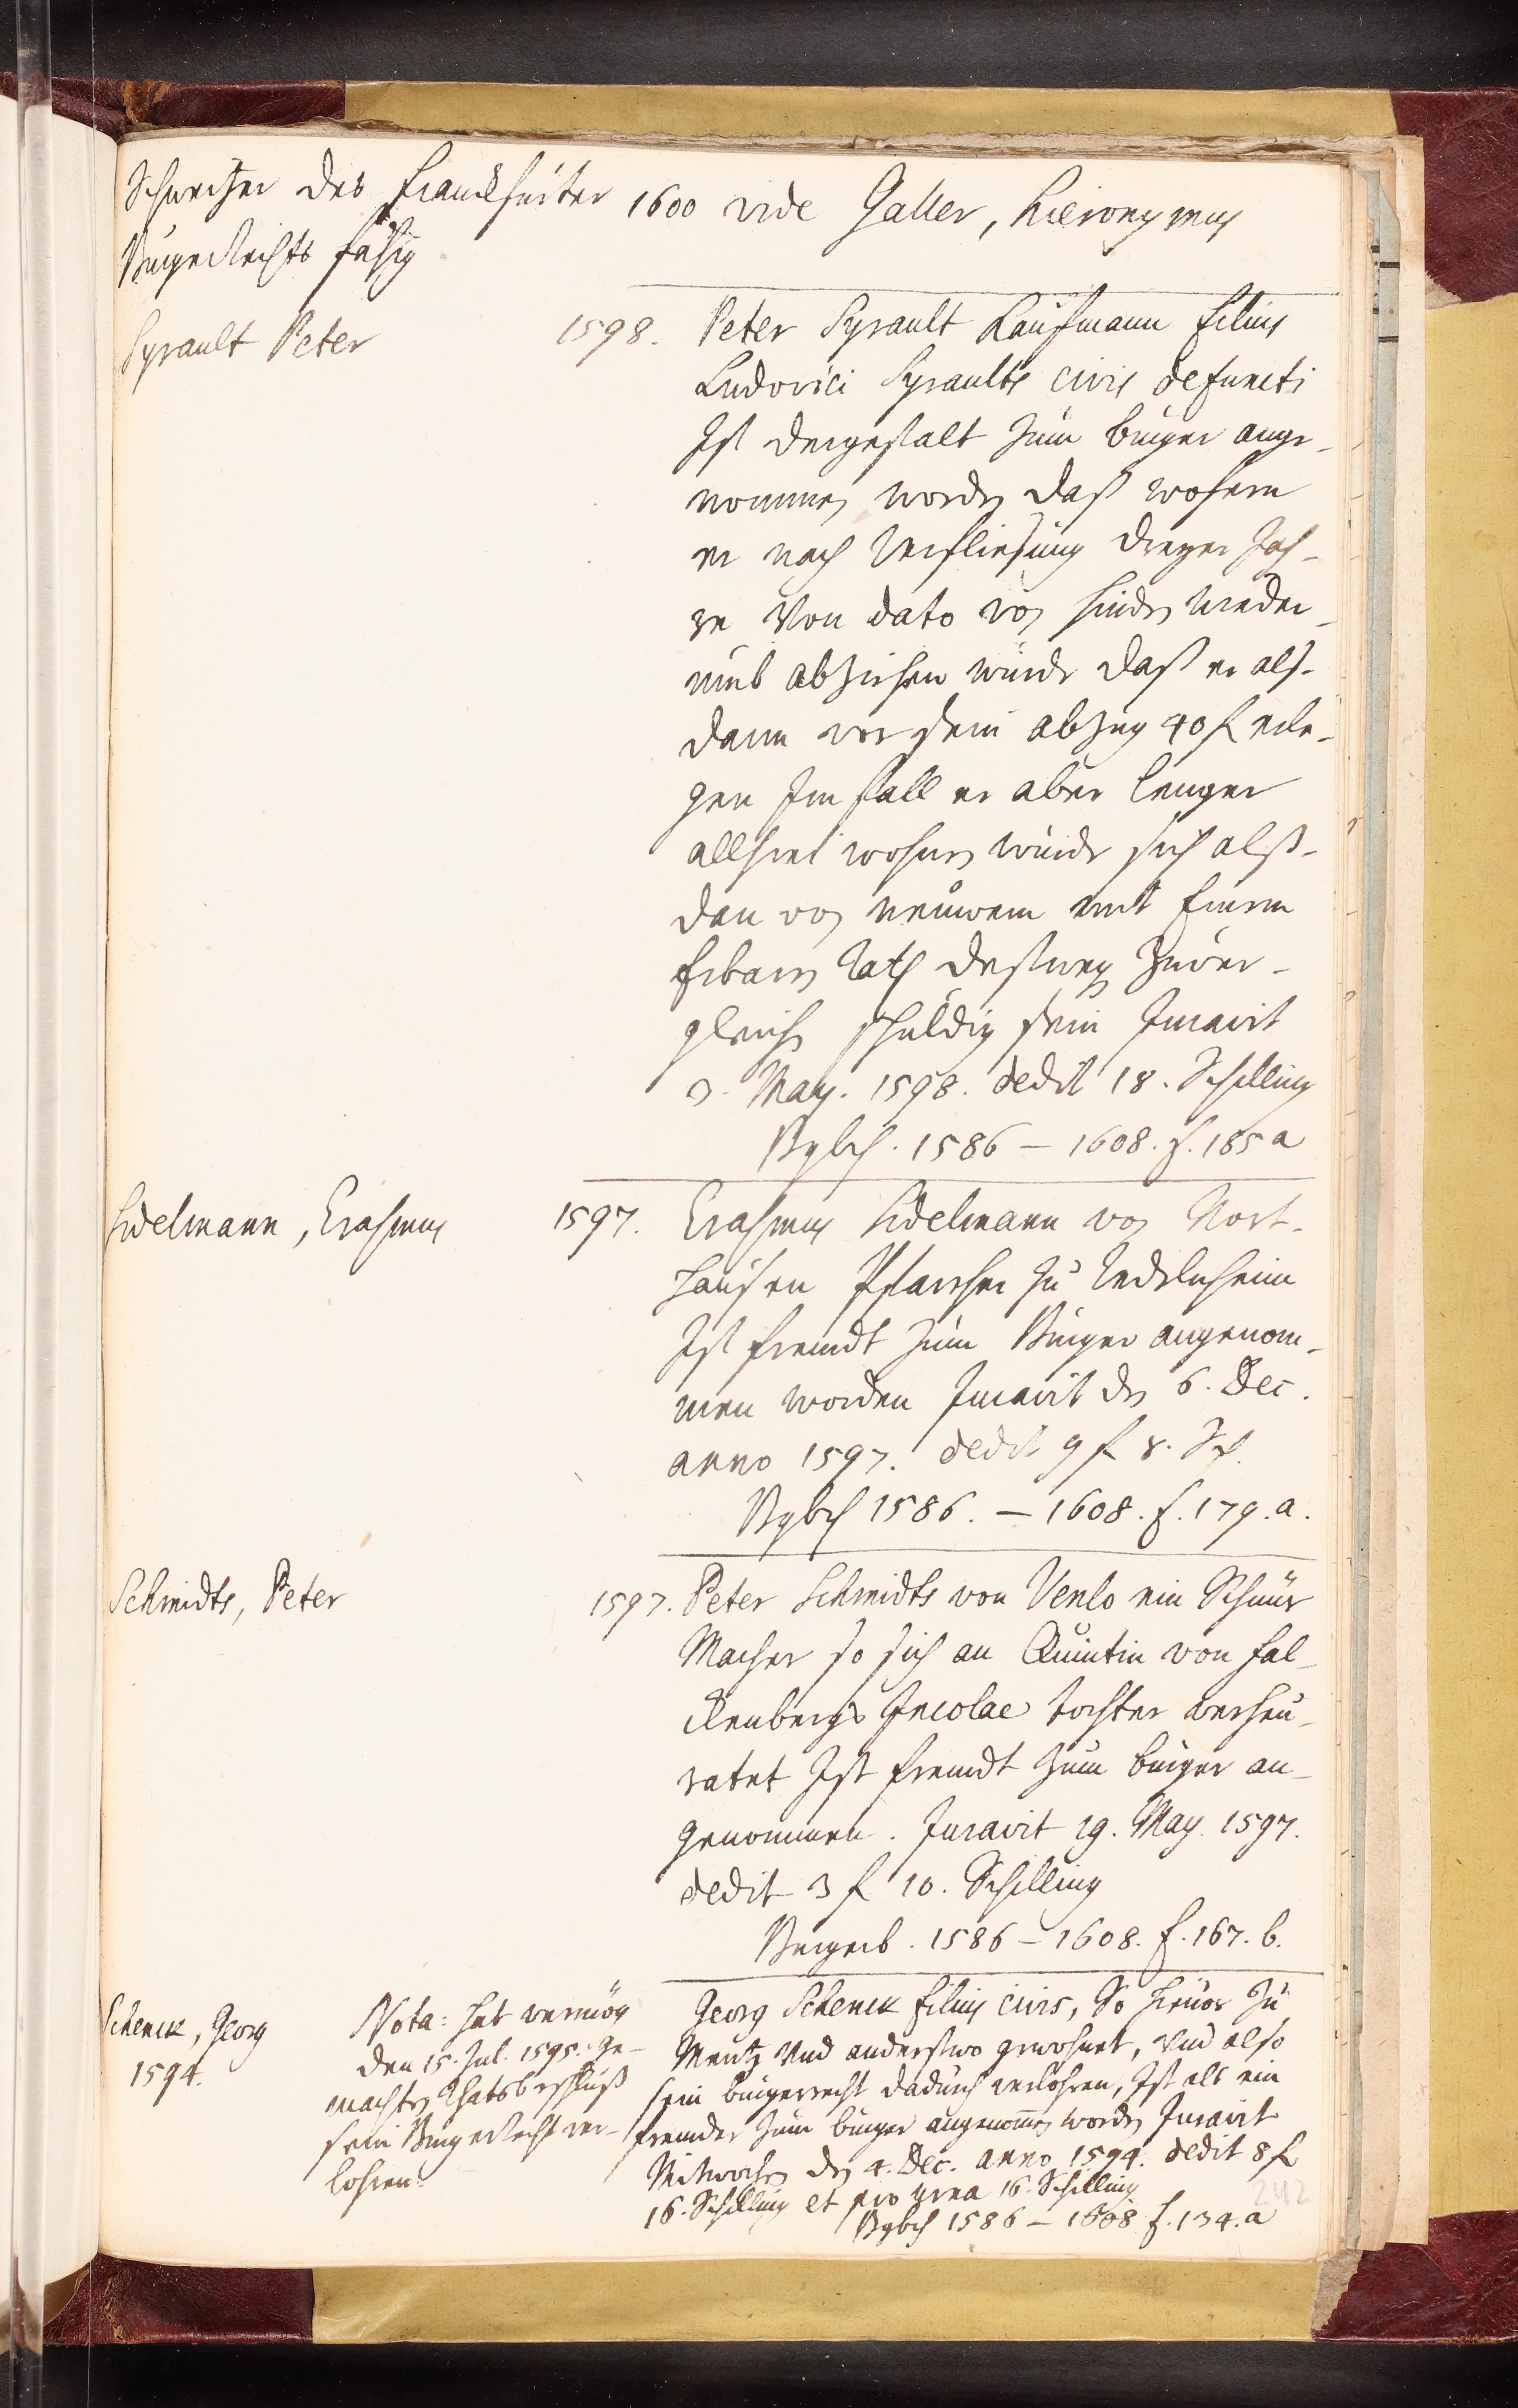 Schweitzer des Franckfurter
Bürgerrechts fähig
1600 vide Galler, Hieronymus
Syrault Peter
1598. Peter Syrault Kaufmann filius
Ludovici Syraults civis defuncti
Ist dergestalt zum burger ange-
nommen worden daß wofern
er nach Verfliesung dreyer Jah-
re Von dato von hinden wieder-
umb abziehen würde daß er alß-
dann vor sein abzug 40 f erle-
gen Im fall er aber lenger
allhie wohnen würde sich alß-
dan von neuwem mit Einem
Erbarn Rath deßweg zuver-
gleichen schuldig sein Juravit
3. May. 1598. dedit 18. Schilling
Bgbch. 1586 – 1608. f. 185 a
Sidelmann, Erasmus
1597. Erasmus Sidelmann von Nort-
hausen Pfarrher zu Redelnheim
Ist frembdt zum Burger angenom-
men worden Juravit den 6. Dec.
anno 1597. dedit 9 f 8. Sch.
Bgbch 1586. – 1608. f. 179. a.
Schmidts, Peter
1597. Peter Schmidts von Venlo ein Schnür
Macher so sich an Quintin von Fal-
ckenbergs Incolae tochter verheu-
ratet Ist frembdt zum burger an-
genommen. Juravit 19. May. 1597.
dedit 3 f 10. Schilling
Burgerb. 1586 – 1608. f. 167. b.
Schenck, Georg
1594.
Nota: hat vermög
den 15. Jul. 1595. ge-
machten Rhatsbeschluß
sein Burgerrecht ver-
lohren.
Georg Schenck filius civis, So hievor zu
Mentz und anderstwo gewohnet, und also
sein burgerrecht dadurch verlohren, Ist als ein
frembder zum burger angenommen worden Juravit
Mitwochen den 4. Dec. anno 1594. dedit 8 f
16. Schilling et pro poena 16. Schilling
Bgbch 1586 – 1608 f. 134. a
242